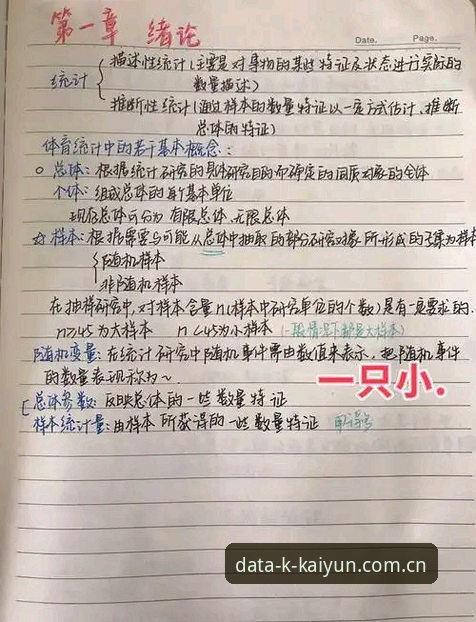 第一章 绪论
Date. Page.
统计
描述性统计(主要是对事物的某些特征及状态进行实际的
数量描述)
推断性统计(通过样本的数量特征以一定方式估计、推断
总体的特征)
体育统计中的若干基本概念:
总体:根据统计研究的具体研究目的而确定的同质对象的全体
个体:组成总体的每个基本单位
现存总体可分为 有限总体、无限总体
☆样本:根据需要与可能从总体中抽取的部分研究对象所形成的子集为样本
随机样本
非随机样本
在抽样研究中,对样本含量n(样本中研究单位的个数)是有一定要求的.
n≥45为大样本 n<45为小样本(一般情况下都是大样本)
随机变量:在统计研究中随机事件需由数值来表示,把随机事件
的数量表现称为~.
一只小.
总体参数:反映总体的一些数量特征
样本统计量:由样本所获得的一些数量特征
data-k-kaiyun.com.cn